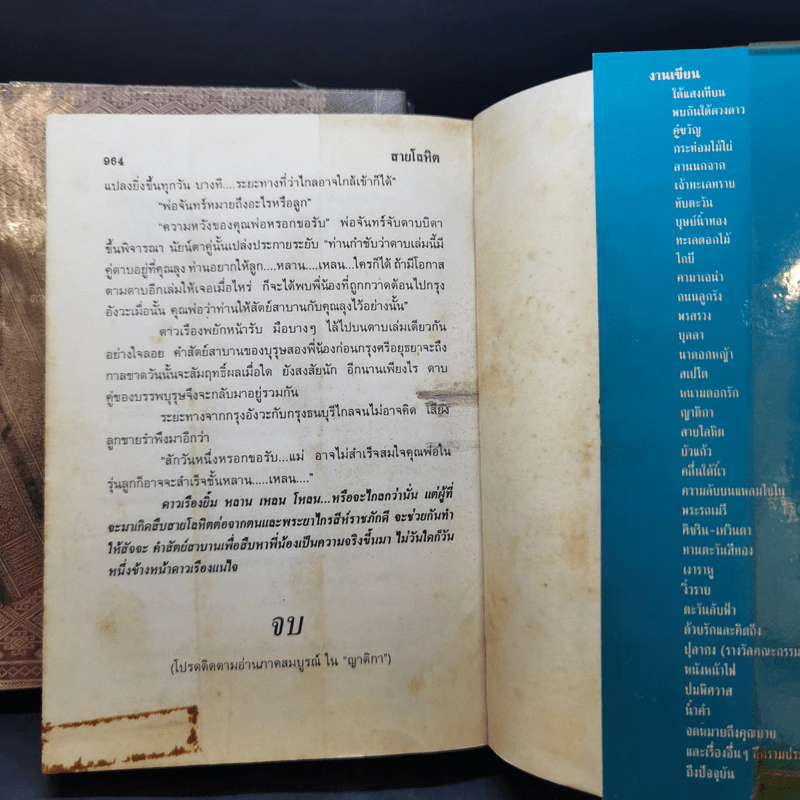 964
สายโลหิต
แปลงยิ่งขึ้นทุกวัน บางที....ระยะทางที่ว่าไกลอาจใกล้เข้าก็ได้"
"พ่อจันทร์หมายถึงอะไรหรือลูก"
"ความหวังของคุณพ่อหรอกขอรับ" พ่อจันทร์จับดาบบิดา
ขึ้นพิจารณา นัยน์ตาคู่นั้นเปล่งประกายระยับ "ท่านกำชับว่าดาบเล่มนี้มี
คู่ดาบอยู่ที่คุณลุง ท่านอยากให้ลูก....หลาน....เหลน...ใครก็ได้ ถ้ามีโอกาส
ตามดาบอีกเล่มให้เจอเมื่อไหร่ ก็จะได้พบพี่น้องที่ถูกกวาดต้อนไปกรุง
อังวะเมื่อนั้น คุณพ่อว่าท่านให้สัตย์สาบานกับคุณลุงไว้อย่างนั้น"
ดาวเรืองพยักหน้ารับ มือบางๆ ไล้ไปบนดาบเล่มเดียวกัน
อย่างใจลอย คำสัตย์สาบานของบุรุษสองพี่น้องก่อนกรุงศรีอยุธยาจะถึง
กาลขาดวันนั้นจะสัมฤทธิ์ผลเมื่อใด ยังสงสัยนัก อีกนานเพียงไร ดาบ
คู่ของบรรพบุรุษจึงจะกลับมาอยู่รวมกัน
ระยะทางจากกรุงอังวะกับกรุงธนบุรีไกลจนไม่อาจคิด เสียง
ลูกชายรำพึงมาอีกว่า
"สักวันหนึ่งหรอกขอรับ...แม่ อาจไม่สำเร็จสมใจคุณพ่อใน
รุ่นลูกก็อาจจะสำเร็จชั้นหลาน.....เหลน...."
ดาวเรืองยิ้ม หลาน เหลน โหลน...หรือจะไกลกว่านั้น แต่ผู้ที่
จะมาเกิดสืบสายโลหิตต่อจากตนและพระยาไกรสีห์ราชภักดี จะช่วยกันทำ
ให้สัจจะ คำสัตย์สาบานเพื่อสืบหาพี่น้องเป็นความจริงขึ้นมา ไม่วันใดก็วัน
หนึ่งข้างหน้าดาวเรืองแน่ใจ
จบ
(โปรดติดตามอ่านภาคสมบูรณ์ ใน "ญาติกา")
งานเขียน
ใต้แสงเทียน
พบกันใต้ดวงดาว
คู่ขวัญ
กระท่อมไม้ไผ่
ลานนกจาก
เจ้าทะเลทราย
ทับตะวัน
บุษย์น้ำทอง
ทะเลดอกไม้
ไกยี
คามาเอน่า
ถนนลูกรัง
พรสรวง
บุลลา
นาดอกหญ้า
สเปโต
หนามดอกรัก
ญาติกา
สายโลหิต
บัวแก้ว
คลื่นใต้น้ำ
ความลับบนแหลมใบโบ
พระรถเมรี
คิชริน-เทวินตา
ทานตะวันสีทอง
เงาราหู
วิวราย
ตะวันลับฟ้า
ด้วยรักและคิดถึง
ปุลากง (รางวัลคณะกรรม
หนังหน้าไฟ
ปมพิศวาส
น้ำคำ
จดหมายถึงคุณยาย
และเรื่องอื่นๆ อีกรวมประ
ถึงปัจจุบัน